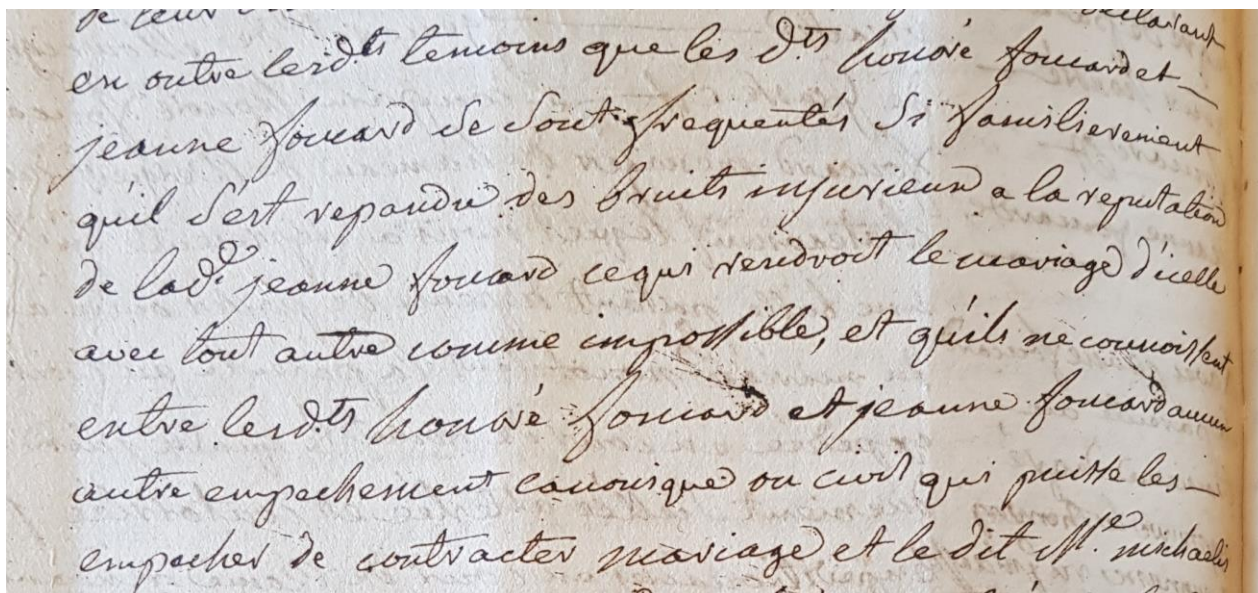 de leur declarant
en outre lesd.ts temoins que les d.ts honoré foucard et
jeanne foucard se sont frequentés si familierement
quil s'est repandu des bruits injurieux a la reputation
de lad.e jeanne foucard ce qui rendroit le mariage d'icelle
avec tout autre comme impossible, et qu'ils ne connoissent
entre lesd.ts honoré foucard et jeanne foucard aucun
autre empechement canonique ou civil qui puisse les
empecher de contracter mariage et le dit M.e michaelis